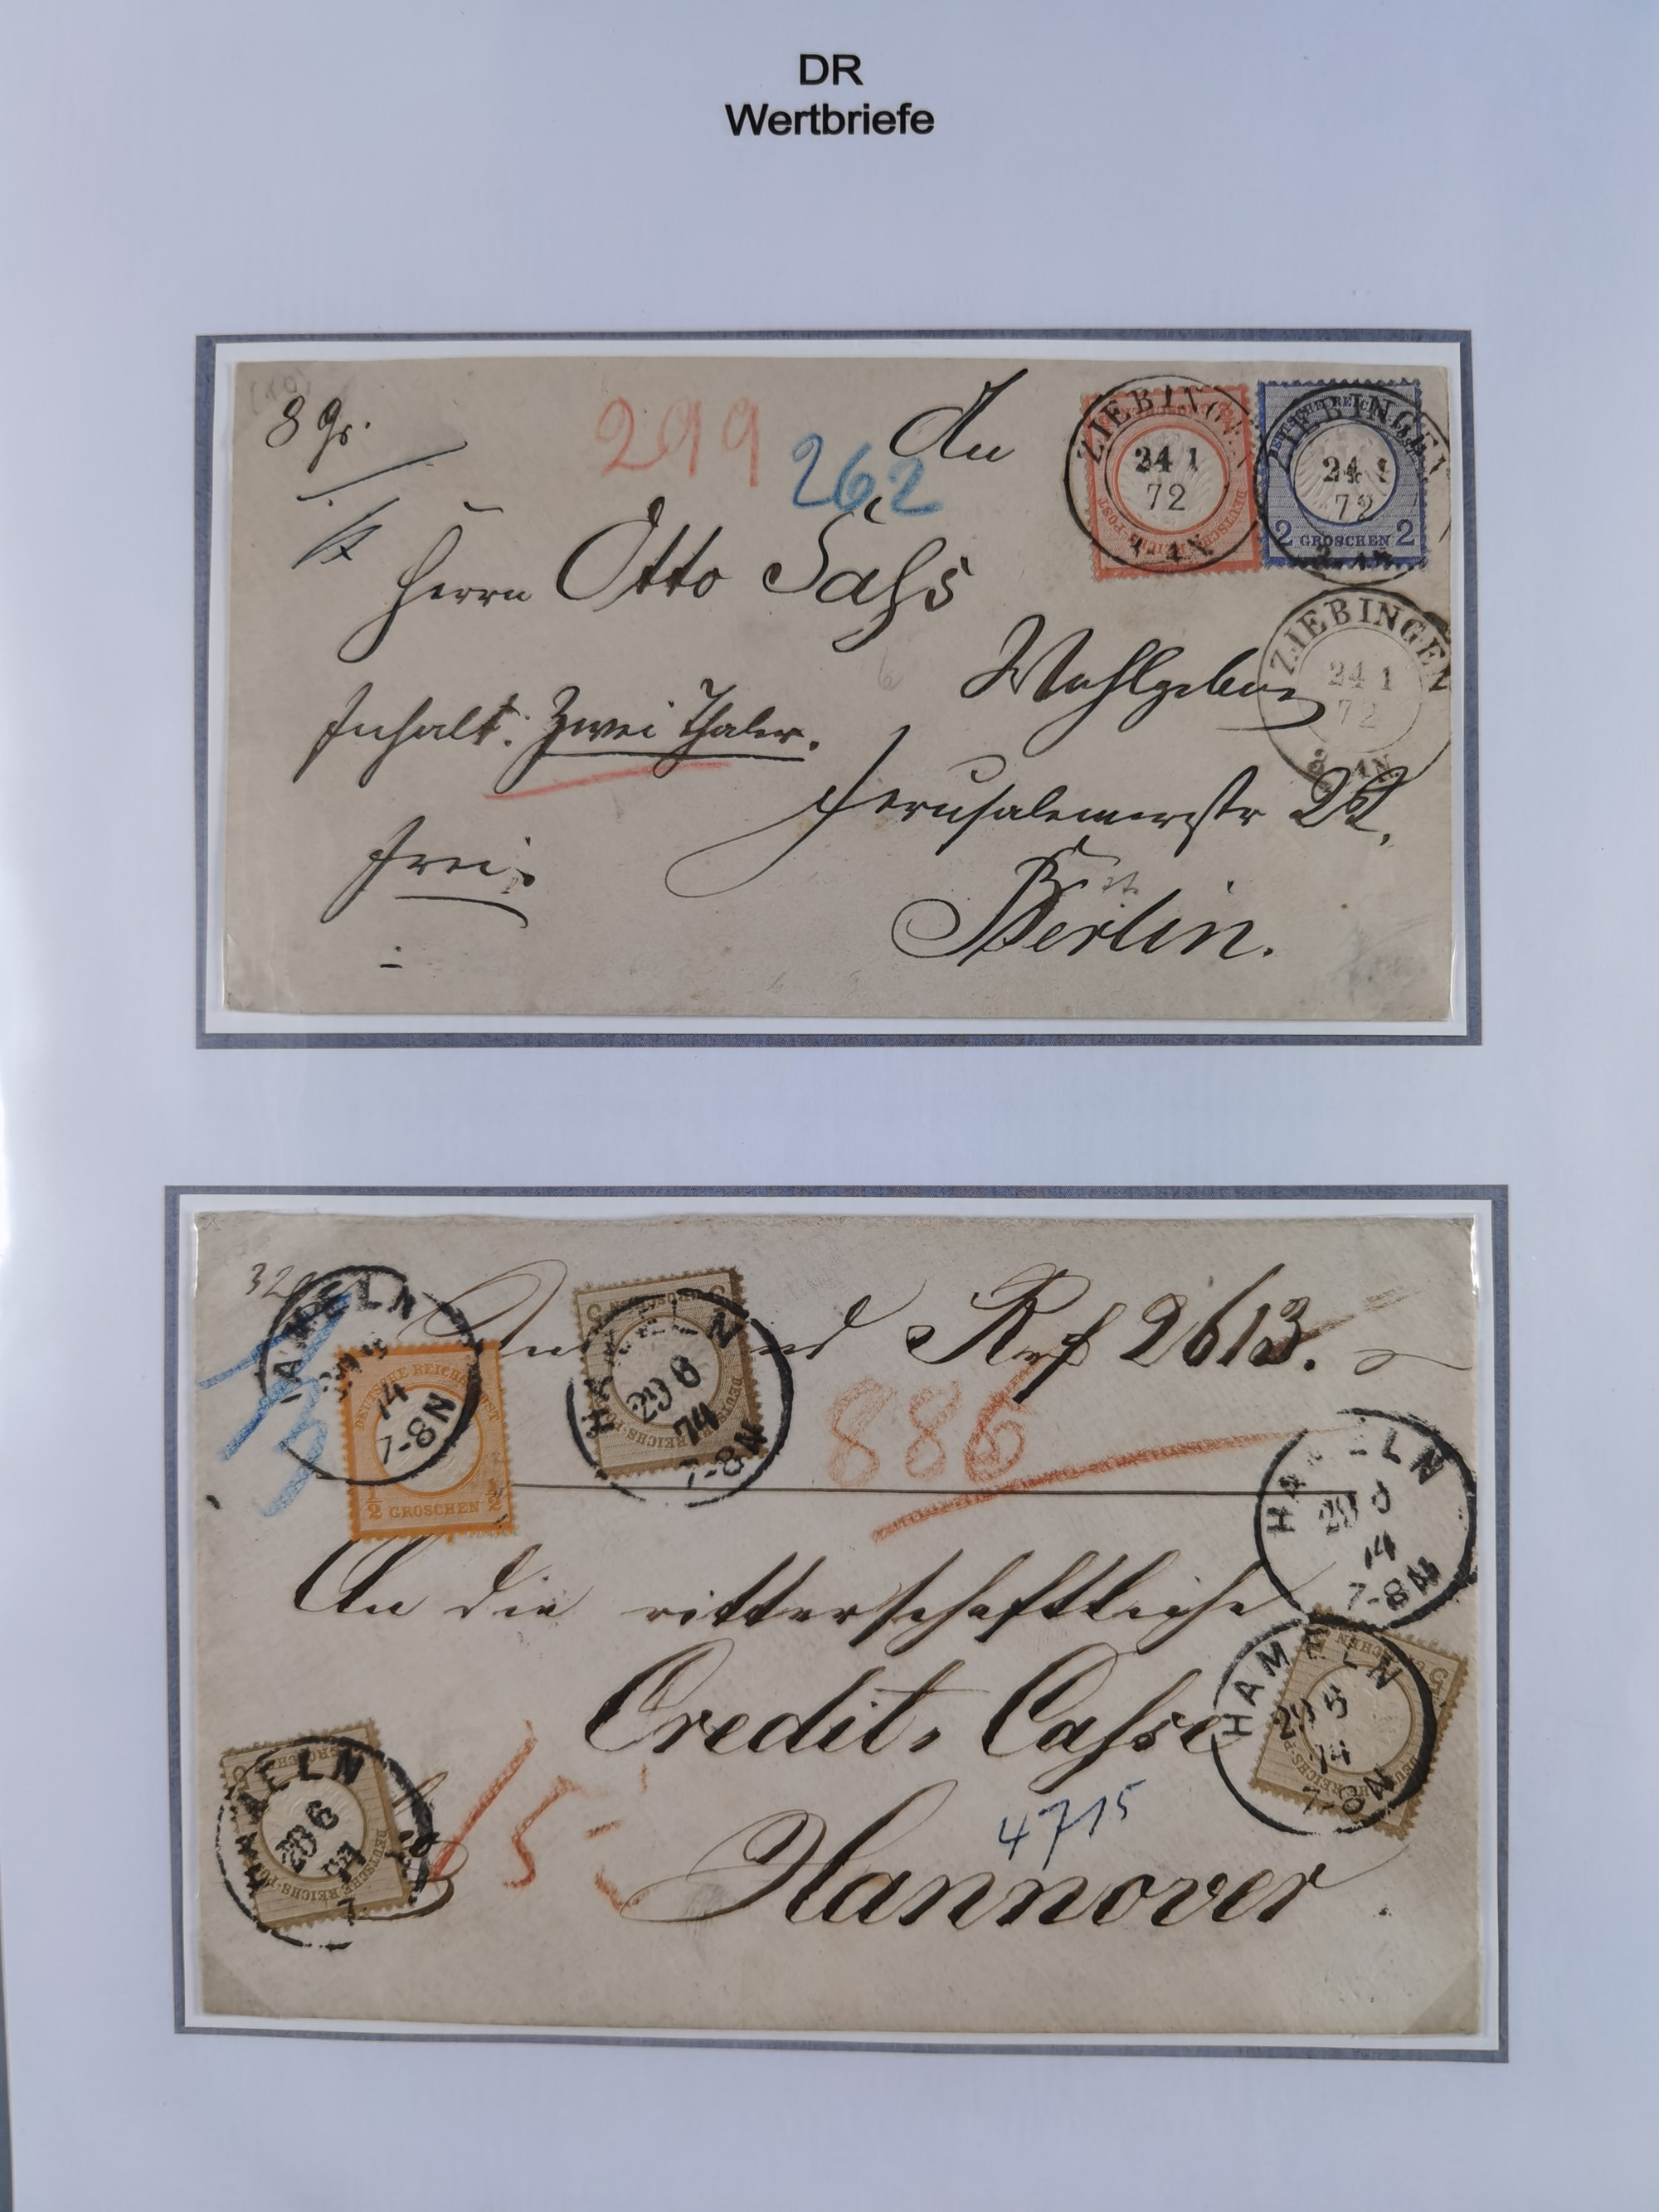 DR
Wertbriefe
8 Gr.
299
262
An
ZIEBINGEN
24 1
72
ZIEBINGEN
24 1
72
DEUTSCHE REICHS-POST
2 GROSCHEN 2
Herrn Otto Sahs
ZIEBINGEN
24 1
72
Wohlgeboren
Inhalt: Zwei Thaler.
Jerusalemerstr 22.
frei.
Berlin.
32
HAMELN
74
7-8N
DEUTSCHE REICHS-POST
½ GROSCHEN ½
HAMELN
29 6
74
7-8N
DEUTSCHE REICHS-POST
2613.
886
HAMELN
74
7-8N
An die ritterschaftliche
Credit, Casse
HAMELN
29 6
74
7-8N
4715
Hannover
HAMELN
29 6
DEUTSCHE REICHS-POST
15